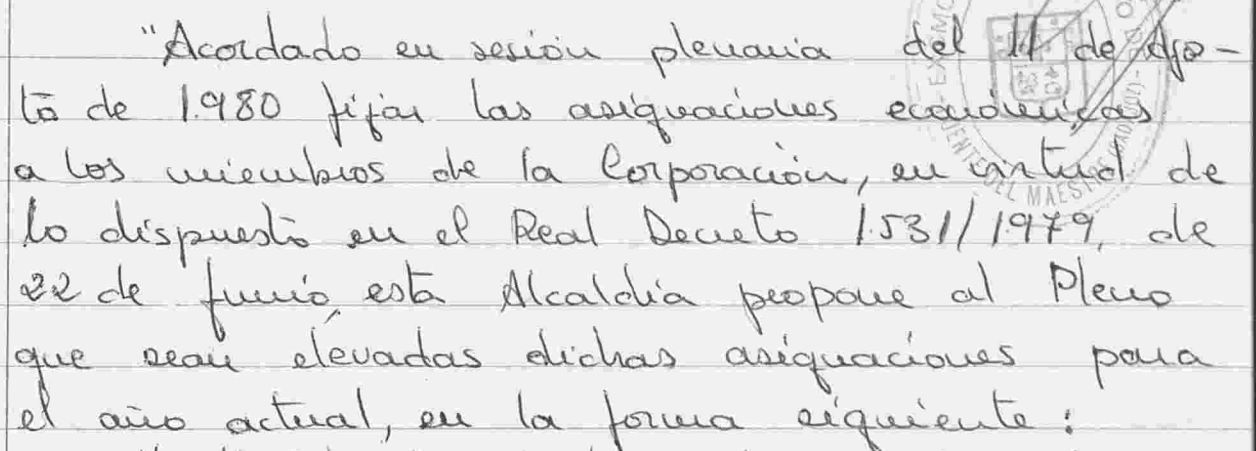 "Acordado en sesión plenaria del 11 de Ago-
to de 1.980 fijar las asignaciones económicas
a los miembros de la Corporación, en virtud de
lo dispuesto en el Real Decreto 1.531/1979, de
22 de junio, esta Alcaldía propone al Pleno
que sean elevadas dichas asignaciones para
el año actual, en la forma siguiente: